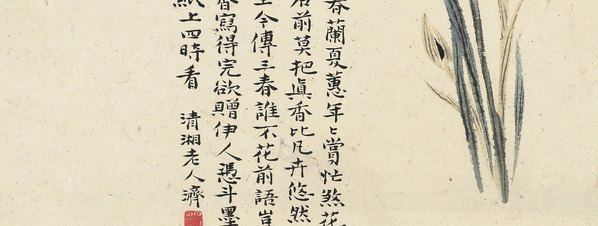 春蘭夏蕙年々賞忙煞花
前莫把真香比凡卉悠然
今傳三春誰不花前語豈
寫得完欲贈伊人憑斗墨
紙上四時看
清湘老人濟